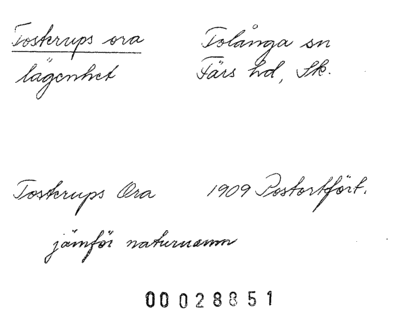 Tosterups ora Tolånga sn
lägenhet Färs hd, Sk.
Tosterups Ora 1909 Postortfört.
jämför naturnamn
00028851